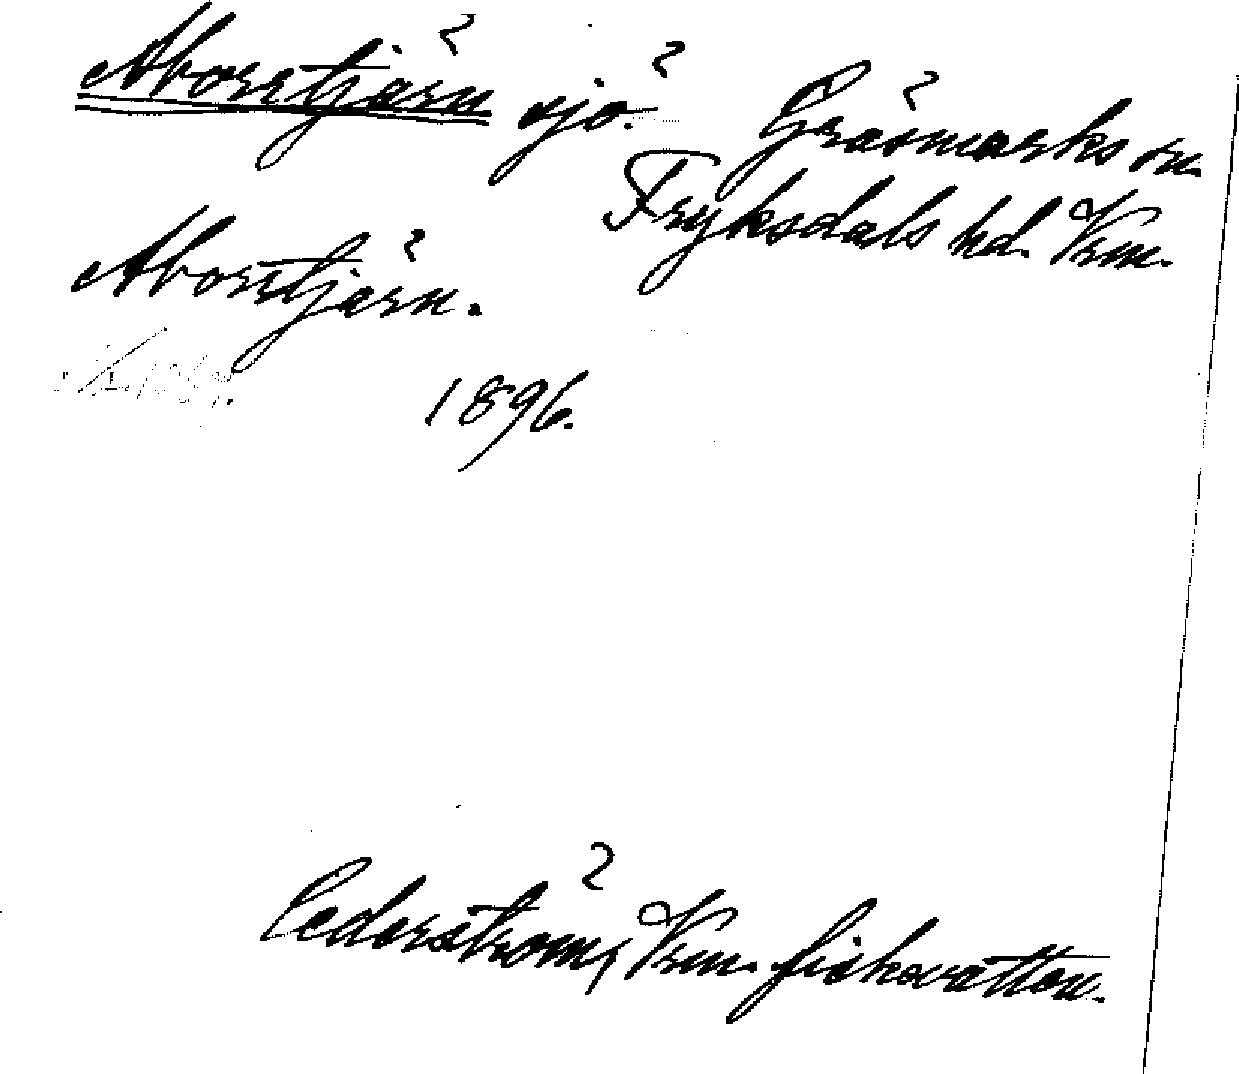 Aborrtjärn sjö. Gräsmarks sn.
Fryksdals hd. Vrm.
Aborrtjärn.
1896.
Cederström, Vrm. fiskevatten.